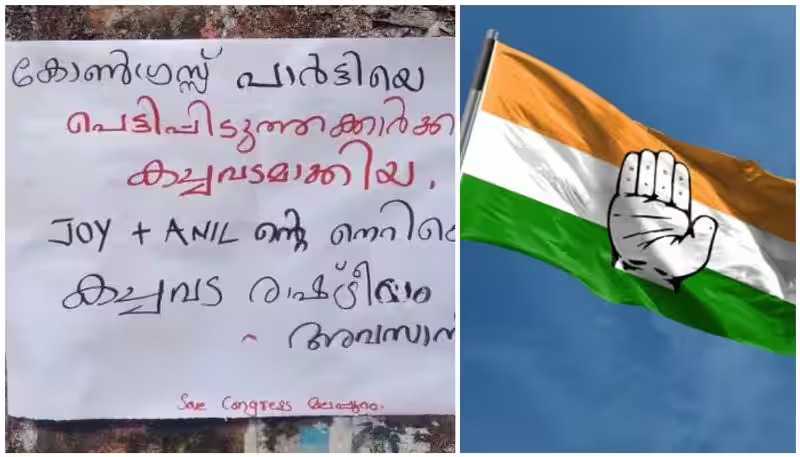 കോൺഗ്രസ്സ് പാർട്ടിയെ
പെട്ടിപ്പിടുത്തക്കാർക്ക
കച്ചവടമാക്കിയ.
JOY + ANIL ന്റെ നെറികെ
കച്ചവട രാഷ്ട്രീയം
അവസാന
Save Congress മലപ്പുറം.